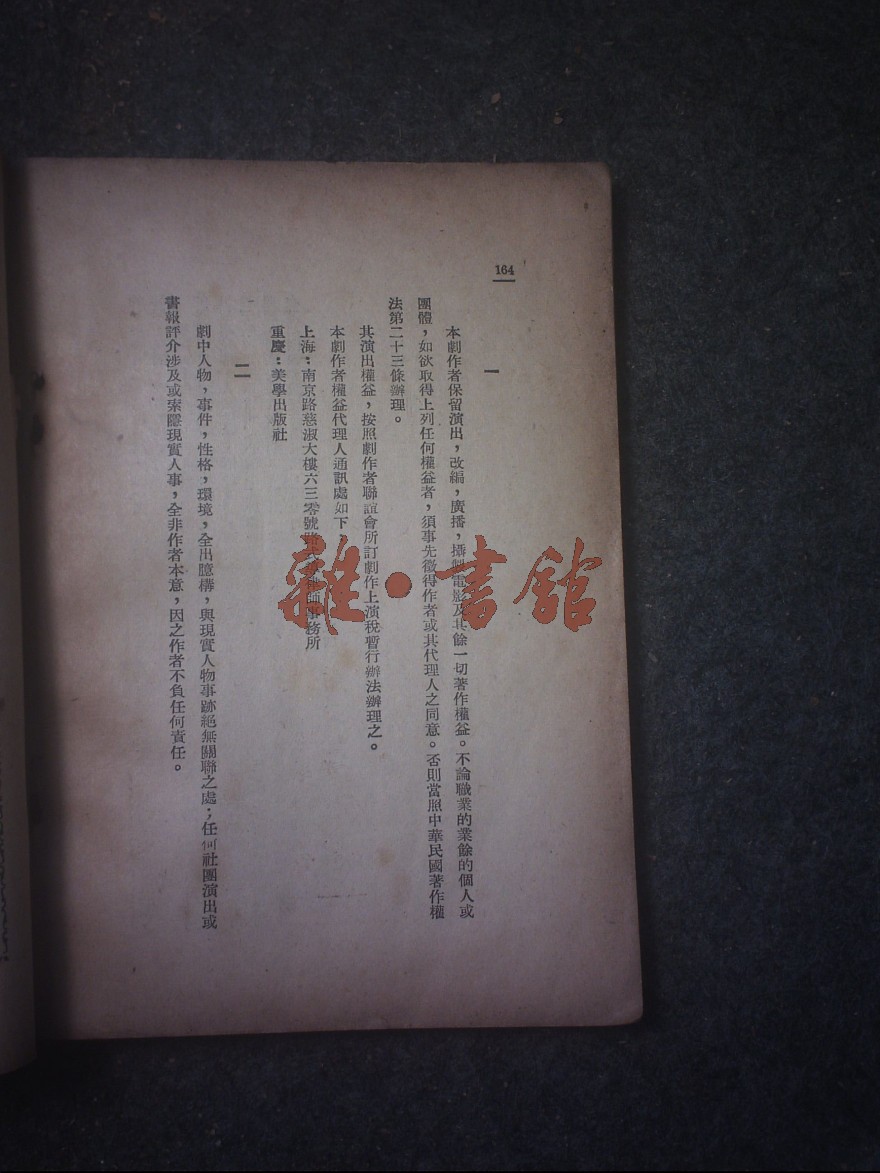 164
一
本劇作者保留演出，改編，廣播，攝製電影及其餘一切著作權益。不論職業的業餘的個人或
團體，如欲取得上列任何權益者，須事先徵得作者或其代理人之同意。否則當照中華民國著作權
法第二十三條辦理。
其演出權益，按照劇作者聯誼會所訂劇作上演稅暫行辦法辦理之。
本劇作者權益代理人通訊處如下
上海：南京路慈淑大樓六三零號 律師事務所
重慶：美學出版社
二
劇中人物，事件，性格，環境，全出臆構，與現實人物事跡絕無關聯之處；任何社團演出或
書報評介涉及或索隱現實人事，全非作者本意，因之作者不負任何責任。
雜·書館